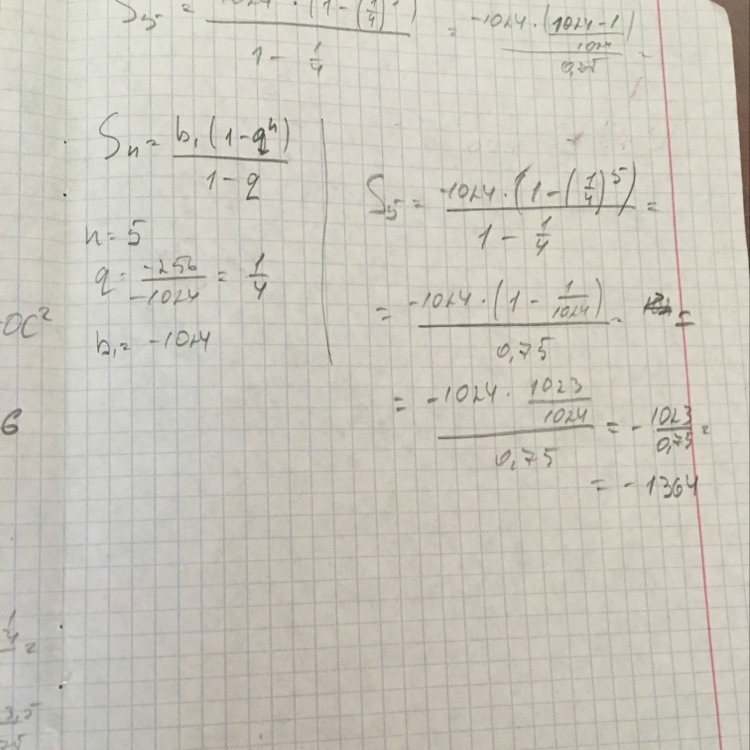 S₅ = -1024 · (1 - (1/4)⁵) / (1 - 1/4) = -1024 · ((1024-1)/1024) / 0,25 =
Sₙ = b₁(1-qⁿ) / (1-q)
n = 5
q = -256/-1024 = 1/4
b₁ = -1024
S₅ = -1024 · (1 - (1/4)⁵) / (1 - 1/4) =
= -1024 · (1 - 1/1024) / 0,75 =
= -1024 · 1023/1024 / 0,75 = - 1023/0,75 =
= -1364
OC²
6
1/4 =